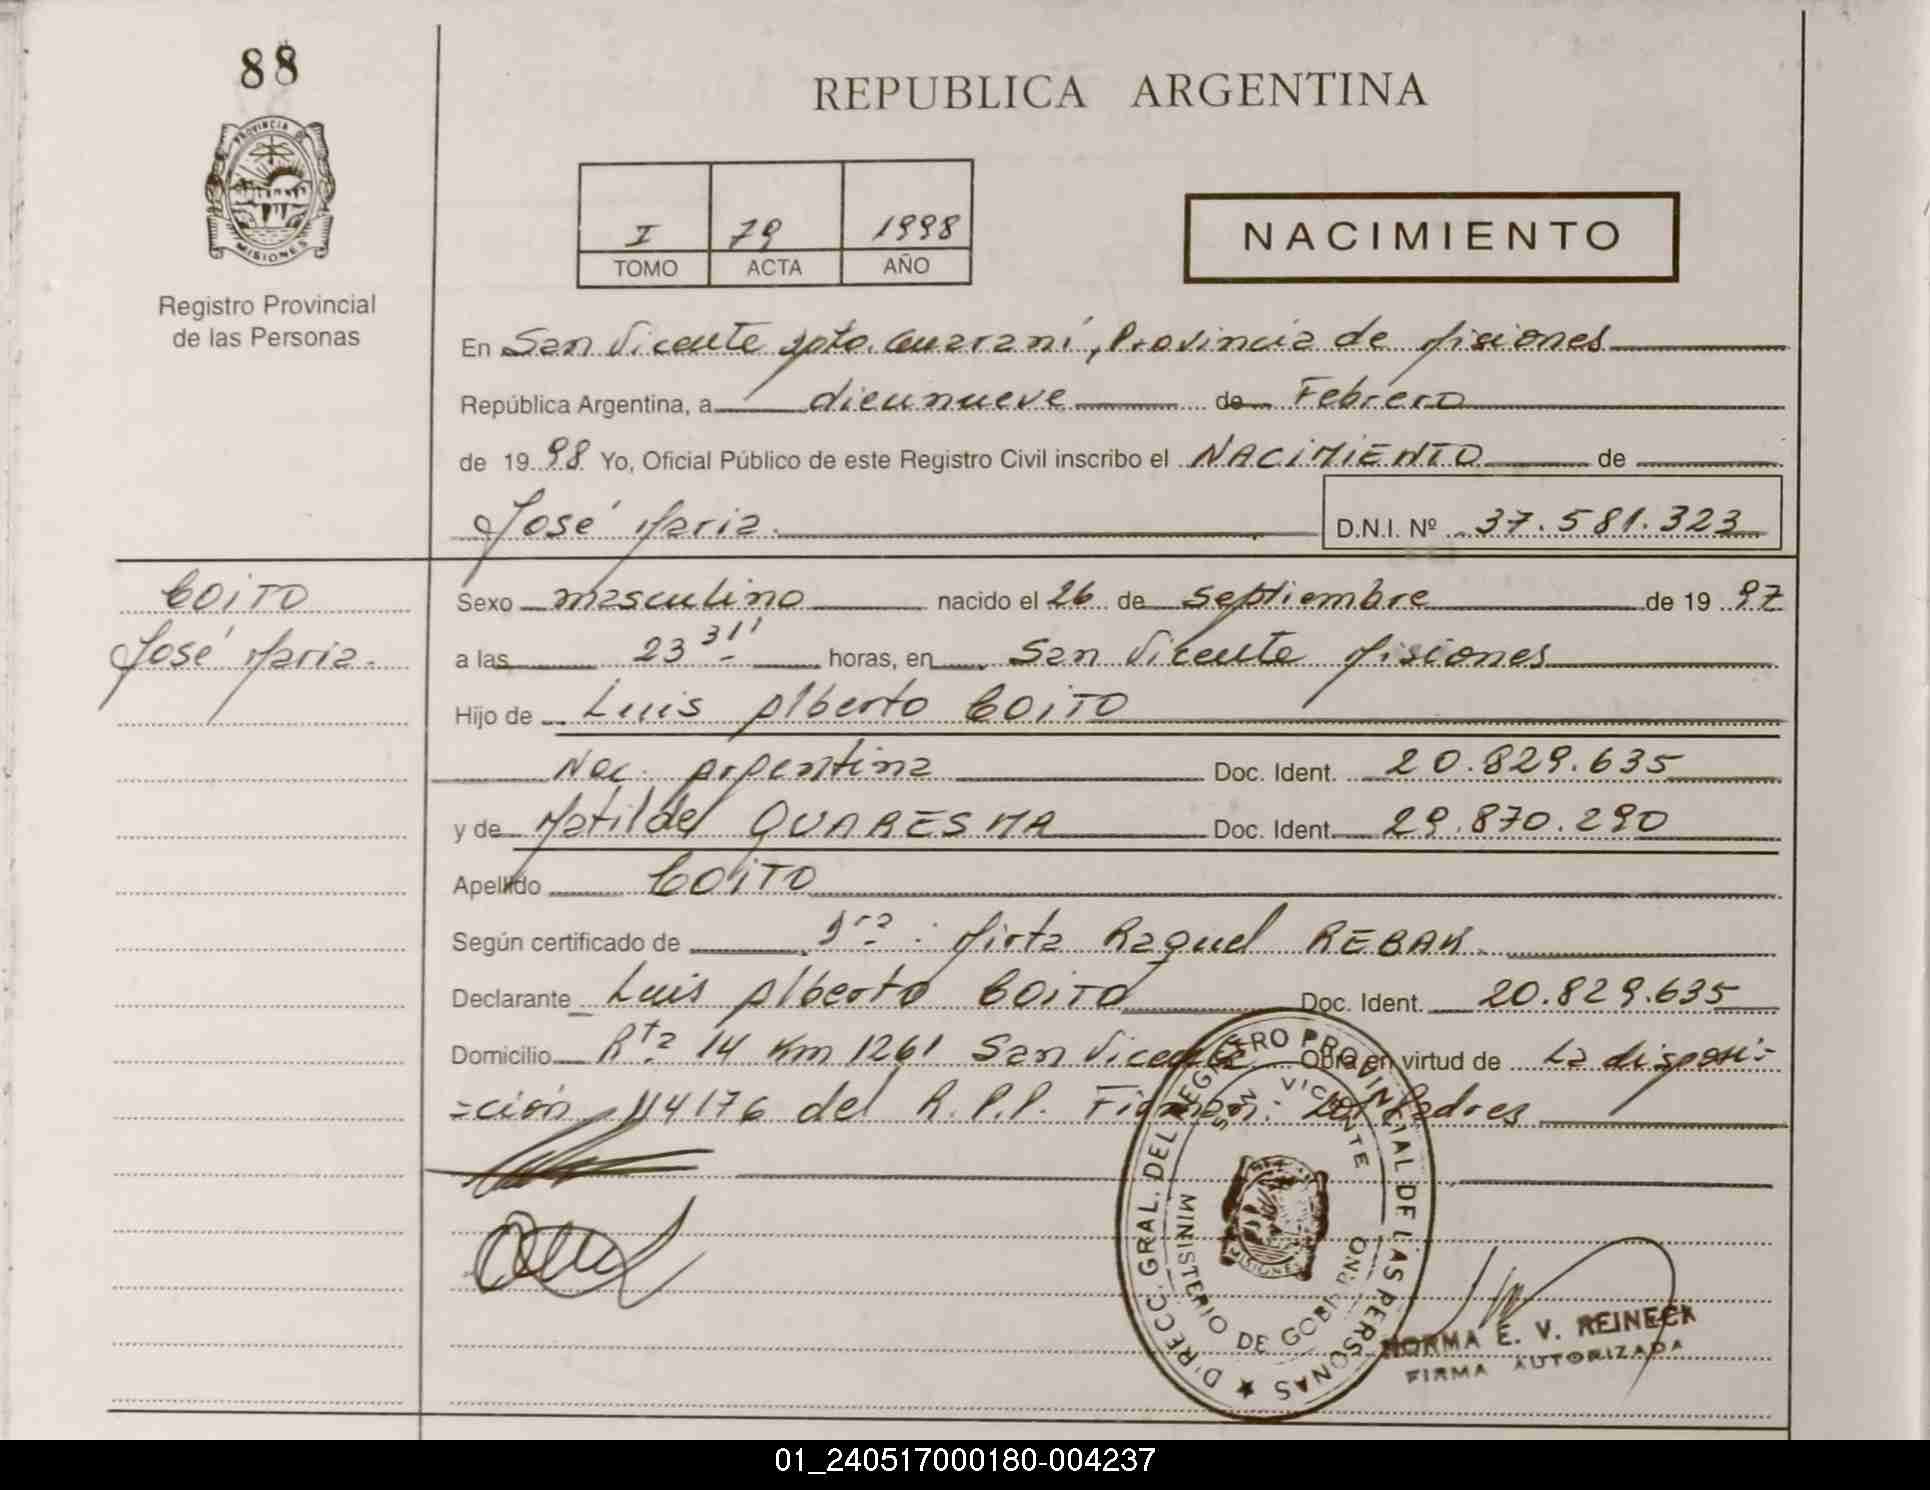 88
REPUBLICA ARGENTINA
PROVINCIA DE
MISIONES
Registro Provincial
de las Personas
I 79 1998
TOMO ACTA AÑO
NACIMIENTO
En San Vicente Dpto. Guaraní, Provincia de Misiones
República Argentina, a diecinueve de Febrero
de 1998 Yo, Oficial Público de este Registro Civil inscribo el NACIMIENTO de
José Maria. D.N.I. Nº 37.581.323
COITO
José Maria.
Sexo masculino nacido el 26 de septiembre de 1997
a las 23 31' horas, en San Vicente Misiones
Hijo de Luis Alberto COITO
Nac. Argentina Doc. Ident. 20.829.635
y de Matilde QUARESMA Doc. Ident. 29.870.290
Apellido COITO
Según certificado de Dra: Mirta Raquel REBAK.
Declarante Luis Alberto COITO Doc. Ident. 20.829.635
Domicilio Rta 14 Km 1261 San Vicente Obra en virtud de La disposi-
=ción 114176 del R.P.P. Firman: Los Padres
DIRECC. GRAL. DEL REGISTRO PROVINCIAL DE LAS PERSONAS
SAN VICENTE
MINISTERIO DE GOBIERNO
MISIONES
NORMA E. V. REINECK
FIRMA AUTORIZADA
01_240517000180-004237